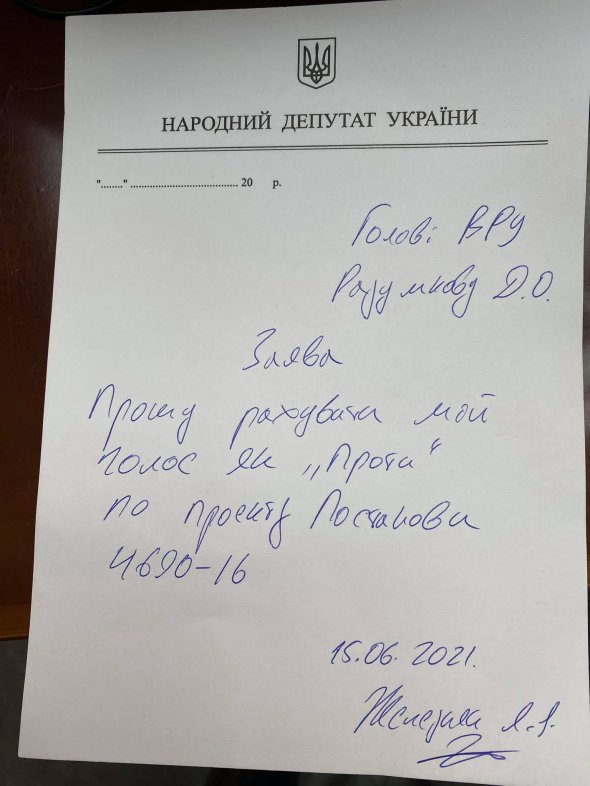 НАРОДНИЙ ДЕПУТАТ УКРАЇНИ
"........" ...................................... 20 р.
Голові ВРУ
Разумкову Д.О.
Заява
Прошу рахувати мой
голос як „Проти“
по проекту Постанови
4690-16
15.06.2021.
Железняк Я.І.